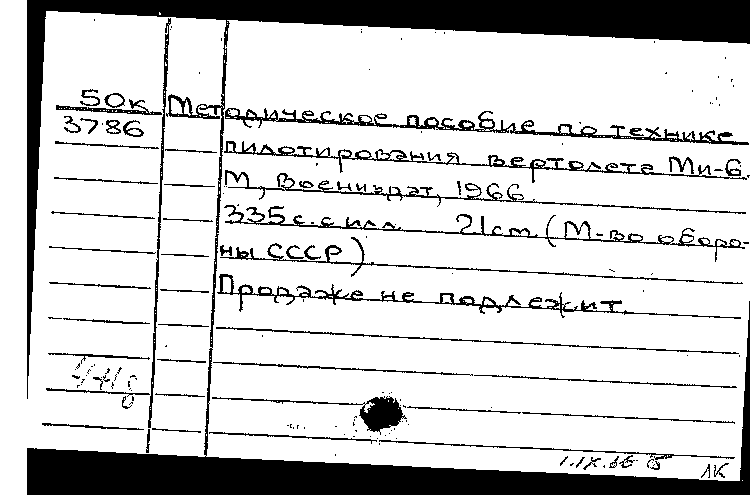 50к Методическое пособие по технике
3786 пилотирования вертолета Ми-6.
М, Воениздат, 1966.
335 с. с илл. 21cm. (М-во оборо-
ны СССР).
Продаже не подлежит.
1.IX.66 ЛК